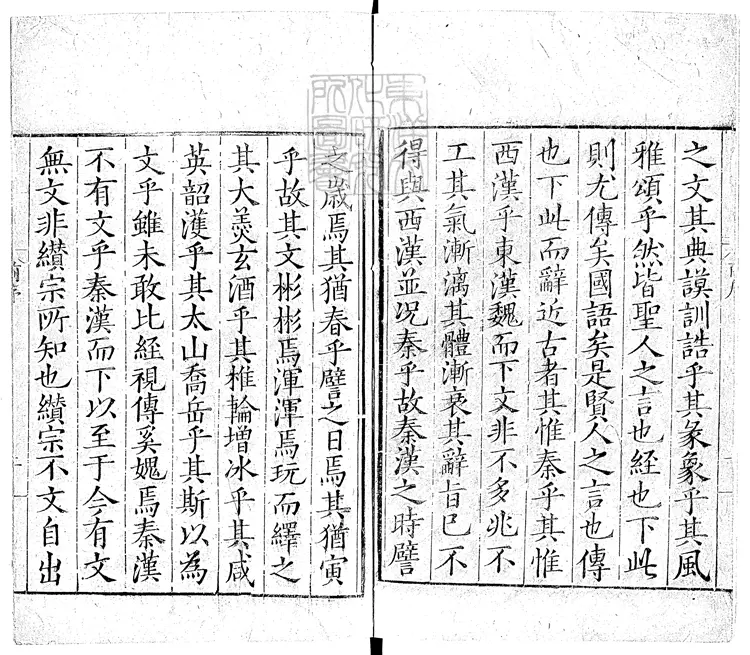 之文其典謨訓誥乎其彖象乎其風
雅頌乎然皆聖人之言也経也下此
則尤傳矣國語矣是賢人之言也傳
也下此而辭近古者其惟秦乎其惟
西漢乎東漢魏而下文非不多兆不
工其氣漸漓其體漸衰其辭旨巳不
得與西漢並况秦乎故秦漢之時譬
之歲焉其猶春乎譬之日焉其猶寅
乎故其文彬彬焉渾渾焉玩而繹之
其大羹玄酒乎其椎輪增冰乎其咸
英韶濩乎其太山喬岳乎其斯以為
文乎雖未敢比経視傳奚媿焉秦漢
不有文乎秦漢而下以至于今有文
無文非纉宗所知也纉宗不文自出